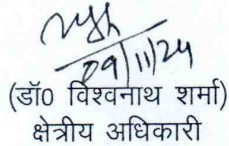 09/11/24
(डॉ0 विश्वनाथ शर्मा)
क्षेत्रीय अधिकारी